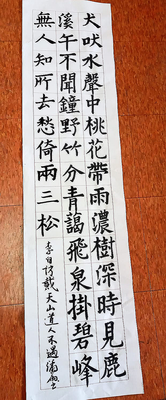 犬吠水聲中桃花帶雨濃樹深時見鹿
溪午不聞鐘野竹分青藹飛泉掛碧峰
無人知所去愁倚兩三松
李白訪戴天山道人不遇